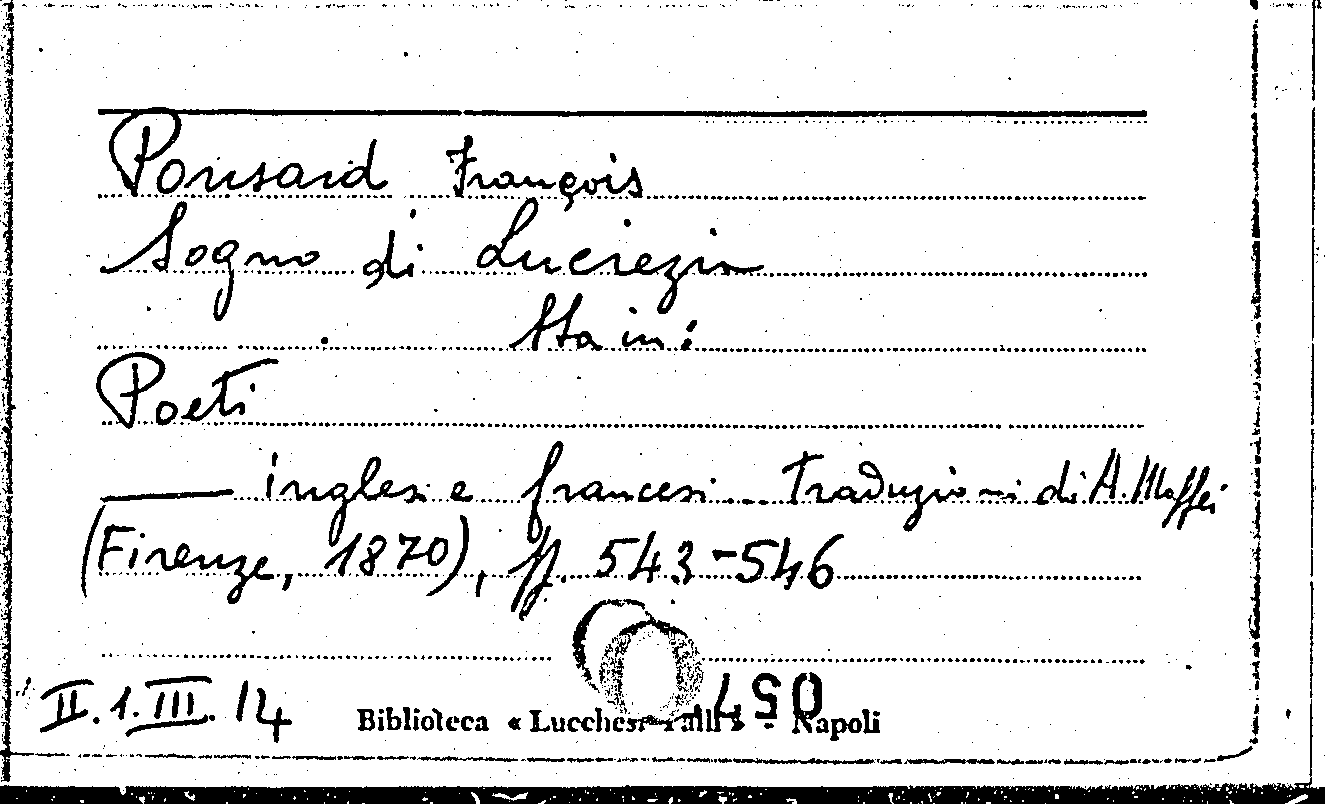 Ponsard François
Sogno di Lucrezia
Sta in:
Poeti
——— inglesi e francesi... Traduzioni di A. Maffei
(Firenze, 1870), pp. 543-546
II. 1. III. 14
Biblioteca « Lucchesi Palli » - Napoli